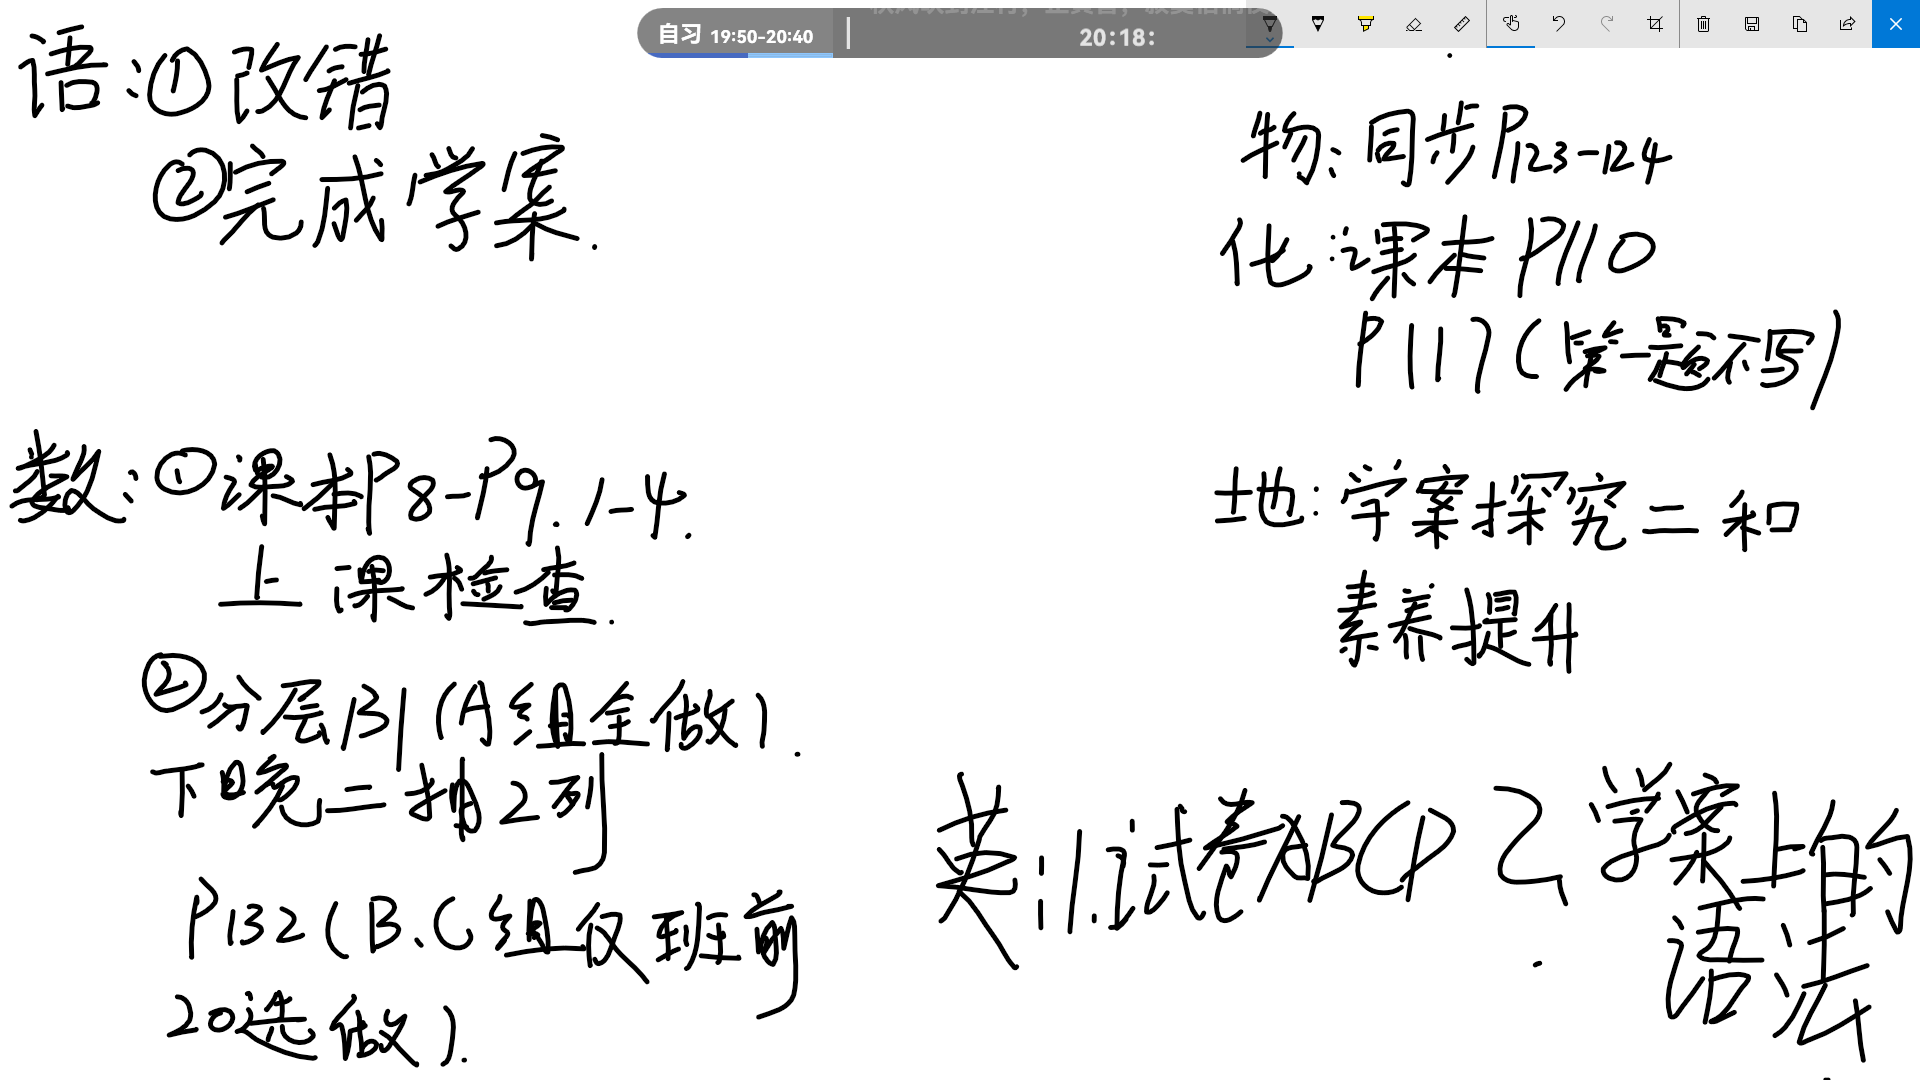 自习 19:50-20:40
20:18:
语:①改错
②完成学案.
数:①课本P8-P9. 1-4.
上课检查.
②分层B1(A组全做).
下日晚二抽2列
P132(B.C组仅班前
20选做).
物:同步P123-124
化:课本P110
P117(第一题不写)
地:学案探究二和
素养提升
英:1.试卷ABCD 2.学案上的
语法